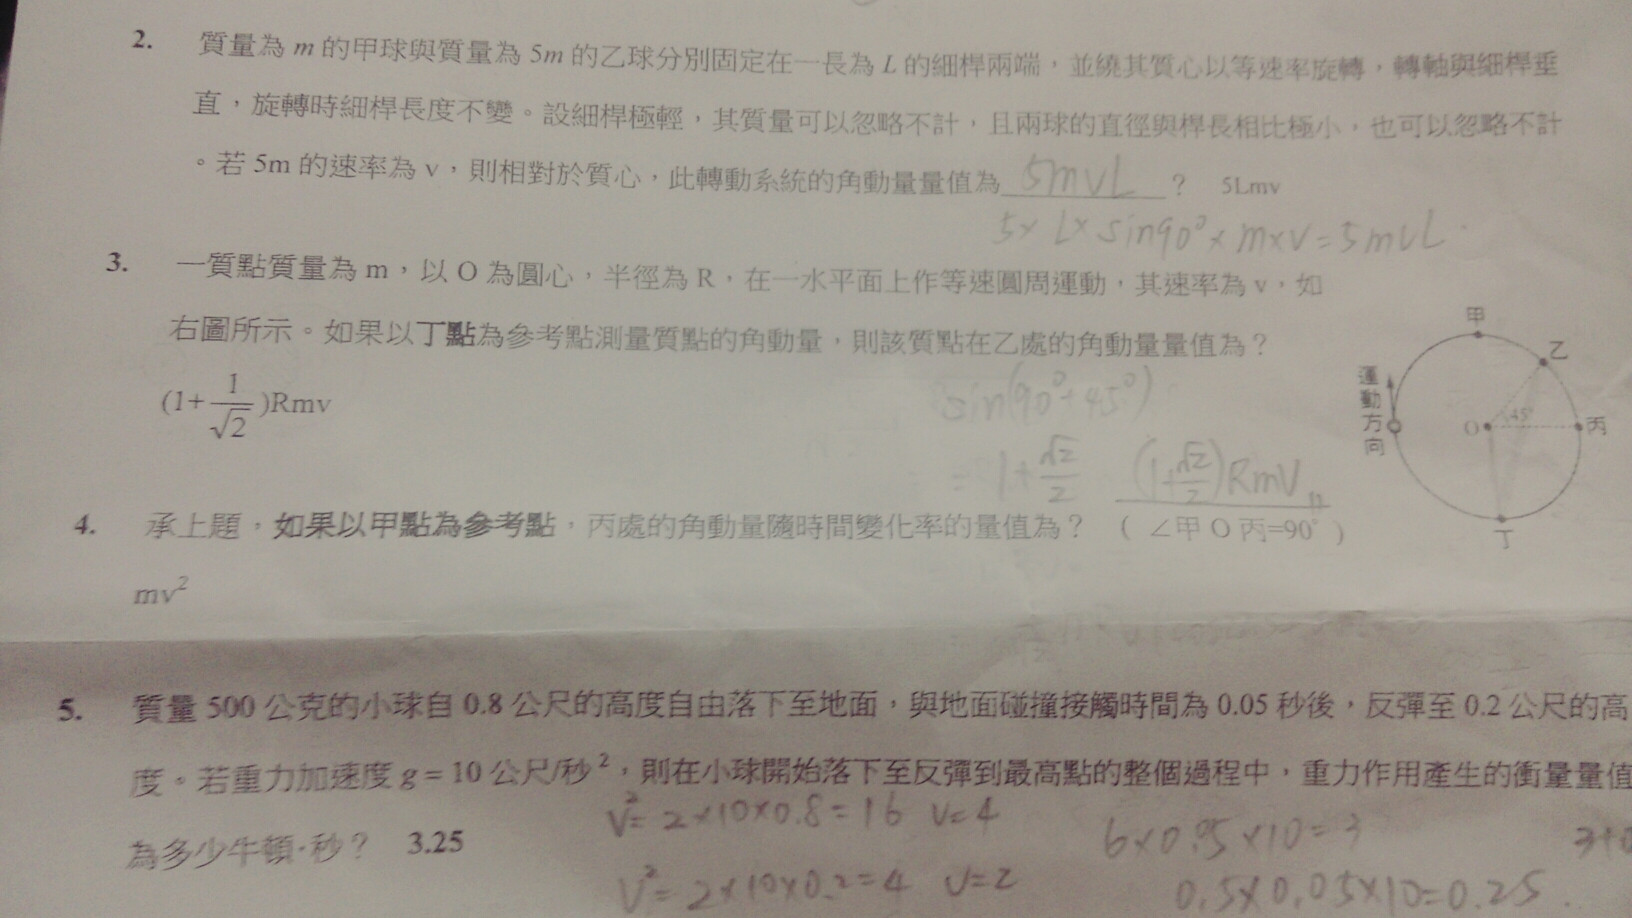 2. 質量為 m 的甲球與質量為 5m 的乙球分別固定在一長為 L 的細桿兩端，並繞其質心以等速率旋轉，轉軸與細桿垂
直，旋轉時細桿長度不變。設細桿極輕，其質量可以忽略不計，且兩球的直徑與桿長相比極小，也可以忽略不計
。若 5m 的速率為 v，則相對於質心，此轉動系統的角動量量值為 5mvL ？ 5Lmv
5×L×sin90°×m×v=5mvL
3. 一質點質量為 m，以 O 為圓心，半徑為 R，在一水平面上作等速圓周運動，其速率為 v，如
右圖所示。如果以丁點為參考點測量質點的角動量，則該質點在乙處的角動量量值為？
(1+1/√2)Rmv
sin(90°+45°)
= 1+√2/2 (1+√2/2)RmV
甲
乙
丙
丁
O
45°
運動方向
4. 承上題，如果以甲點為參考點，丙處的角動量隨時間變化率的量值為？ （∠甲O丙=90°）
mv²
5. 質量 500 公克的小球自 0.8 公尺的高度自由落下至地面，與地面碰撞接觸時間為 0.05 秒後，反彈至 0.2 公尺的高
度。若重力加速度 g = 10 公尺/秒²，則在小球開始落下至反彈到最高點的整個過程中，重力作用產生的衝量量值
為多少牛頓·秒？ 3.25
v²=2×10×0.8=16 v=4
v²=2×10×0.2=4 v=2
0.5×0.05×10=0.25